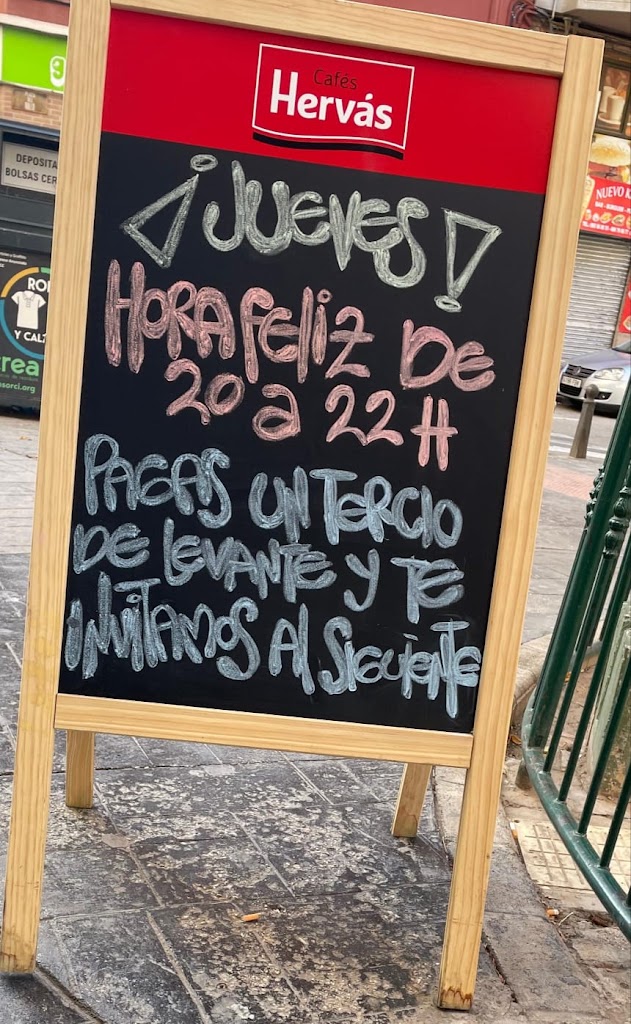 Cafés
Hervás
¡JUEVES!
HORA feliz DE
20 a 22 H
PAGAS UN TERCIO
DE LEVANTE Y TE
INVITAMOS Al SIGUIENTE
DEPOSITA
BOLSAS CER
Y CAL
rea
NUEVO K